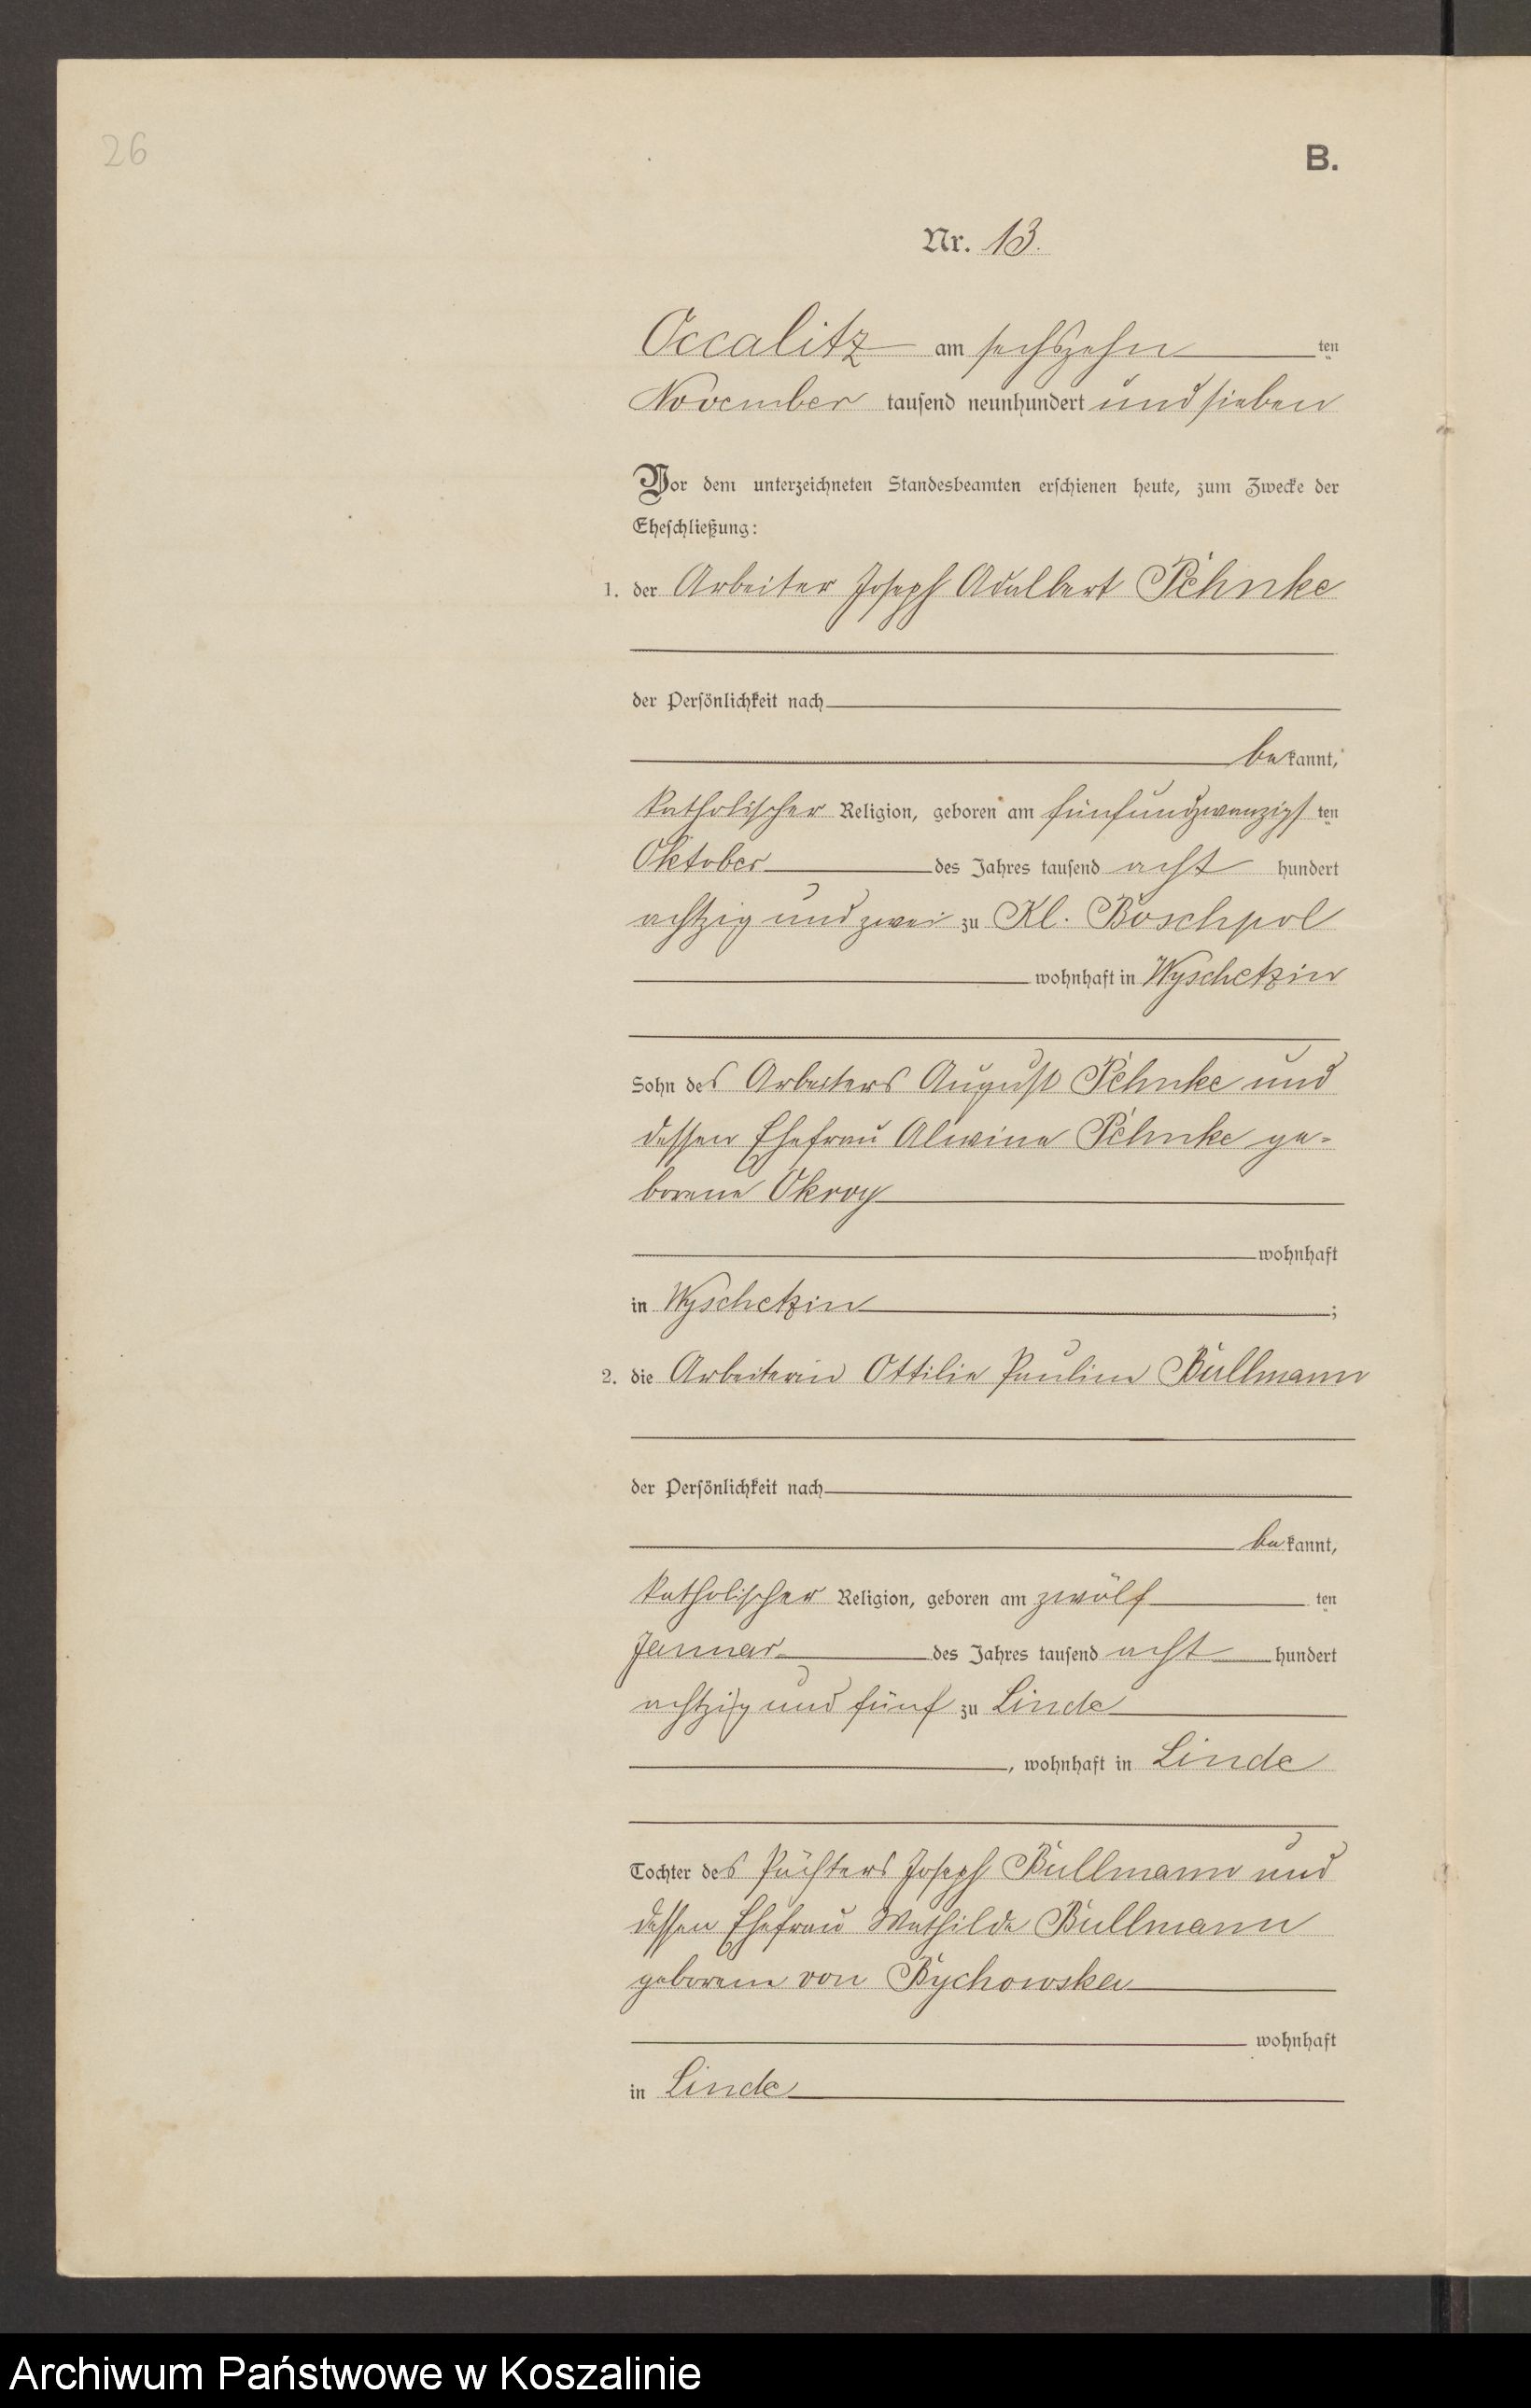 26
B.
Nr. 13.
Occalitz am sechszehn ten
November tausend neunhundert und sieben
Vor dem unterzeichneten Standesbeamten erschienen heute, zum Zwecke der
Eheschließung:
1. der Arbeiter Joseph Adalbert Pehnke
der Persönlichkeit nach
be kannt,
katholischer Religion, geboren am fünfundzwanzigs ten
Oktober des Jahres tausend acht hundert
achtzig und zwei zu Kl. Boschpol
wohnhaft in Wyschetzin
Sohn des Arbeiters August Pehnke und
dessen Ehefrau Alwine Pehnke ge-
borene Okroy
wohnhaft
in Wyschetzin ;
2. die Arbeiterin Ottilie Pauline Bullmann
der Persönlichkeit nach
be kannt,
katholischer Religion, geboren am zwölf ten
Januar des Jahres tausend acht hundert
achtzig und fünf zu Linde
, wohnhaft in Linde
Tochter des Pächters Joseph Bullmann und
dessen Ehefrau Mathilde Bullmann
geborene von Bychowska
wohnhaft
in Linde
Archiwum Państwowe w Koszalinie